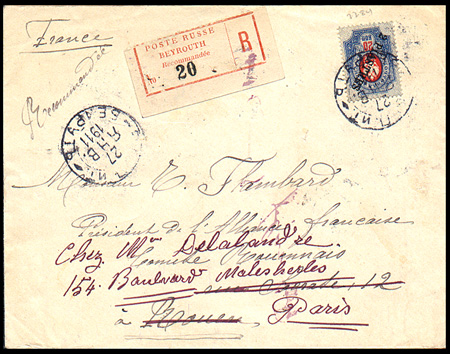 France
Recommandée
POSTE RUSSE
BEYROUTH
Recommandée
R
No
20
27
ЯНВ
1911
БЕЙРУТЪ
27
Monsieur E. Flambard
Président de l'Alliance française
Chez Mme Delalandre
Comité Rouennais
154 Boulevard Malesherbes
12
à Rouen
Paris